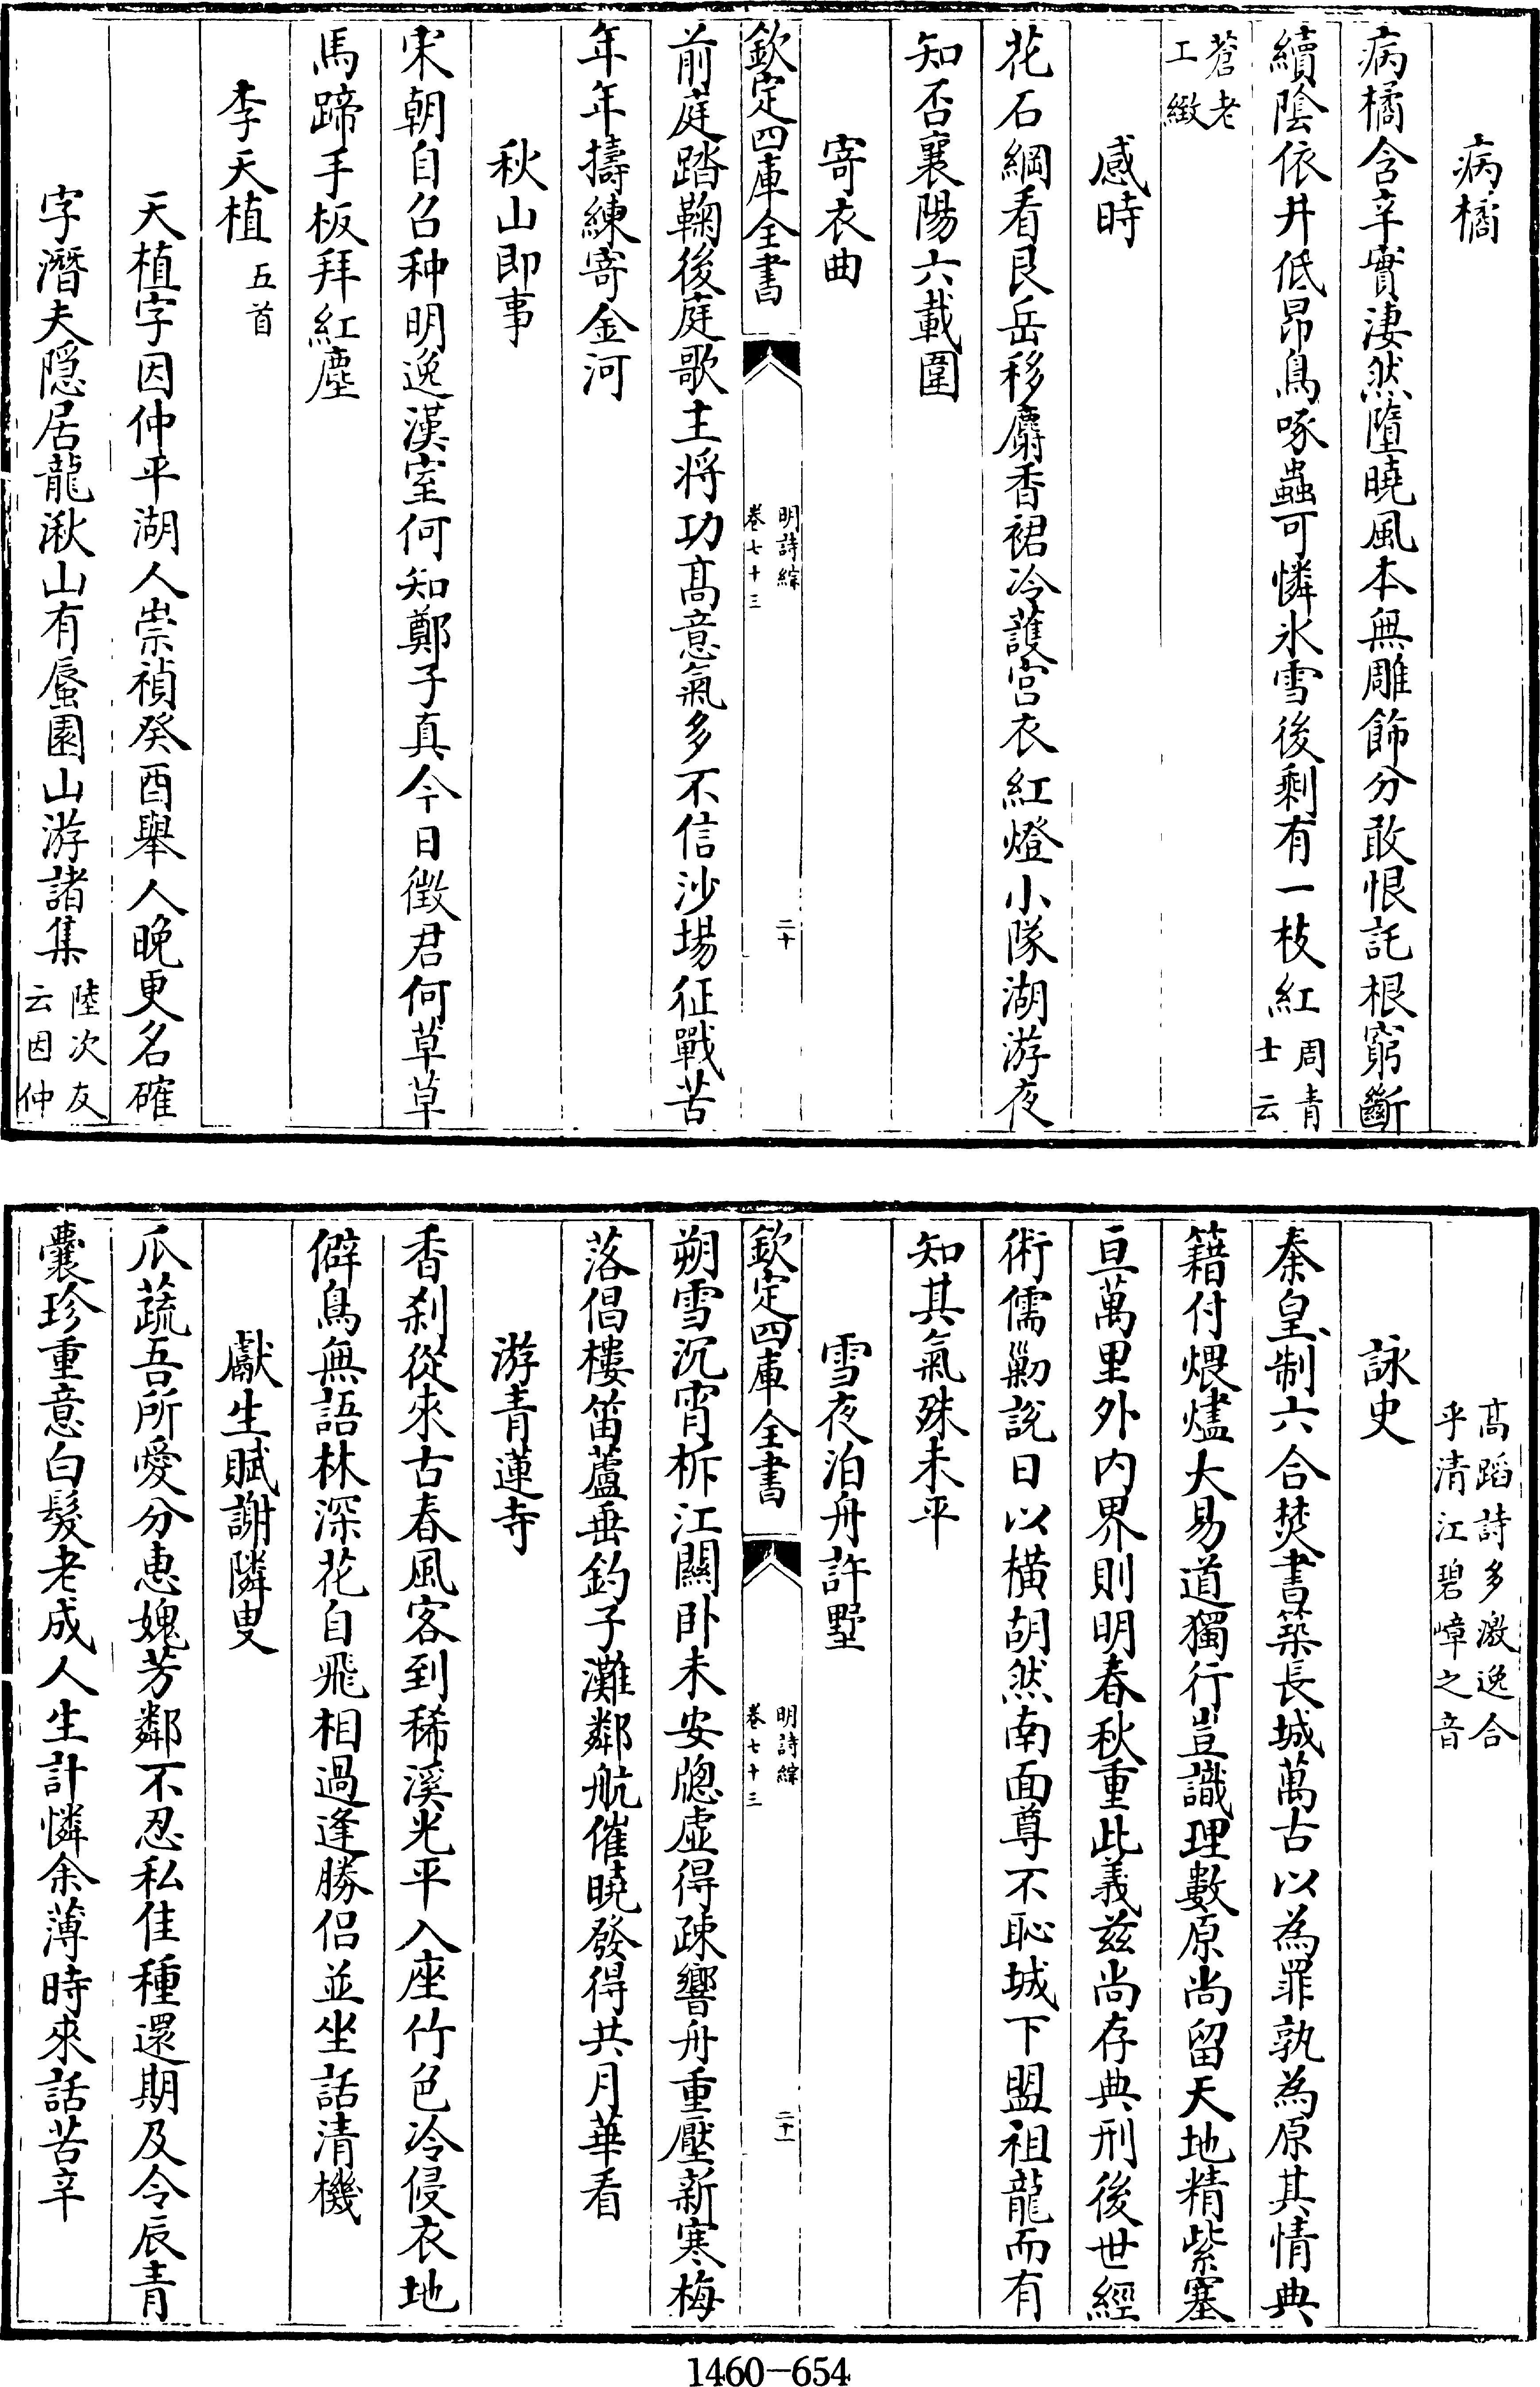 病橘
病橘含辛實淒然墮曉風本無雕飾分敢恨託根窮斷
續陰依井低昂鳥啄蟲可憐氷雪後剩有一枝紅周青士云
蒼老工緻
感時
花石綱看艮岳移麝香裙冷護宮衣紅燈小隊湖游夜
知否襄陽六載圍
寄衣曲
欽定四庫全書 明詩綜 卷七十三 二十
前庭踏鞠後庭歌主將功髙意氣多不信沙場征戰苦
年年擣練寄金河
秋山即事
宋朝自召种明逸漢室何知鄭子真今日徴君何草草
馬蹄手板拜紅塵
李天植五首
天植字因仲平湖人崇禎癸酉舉人晚更名確
字潛夫隱居龍湫山有蜃園山游諸集陸次友云因仲
髙蹈詩多激逸合乎清江碧嶂之音
詠史
秦皇制六合焚書築長城萬古以為罪孰為原其情典
籍付煨燼大易道獨行豈識理數原尚留天地精紫塞
亘萬里外内界則明春秋重此義兹尚存典刑後世經
術儒勦說日以横胡然南面尊不恥城下盟祖龍而有
知其氣殊未平
雪夜泊舟許墅
欽定四庫全書 明詩綜 卷七十三 二十一
朔雪沉宵柝江關卧未安牕虚得疎響舟重壓新寒梅
落倡樓笛蘆垂釣子灘鄰航催曉發得共月華看
游青蓮寺
香刹從來古春風客到稀溪光平入座竹色冷侵衣地
僻鳥無語林深花自飛相過逢勝侶並坐話清機
獻生賦謝隣叟
瓜蔬吾所愛分惠媿芳鄰不忍私佳種還期及令辰青
囊珍重意白髮老成人生計憐余薄時來話苦辛
1460-654